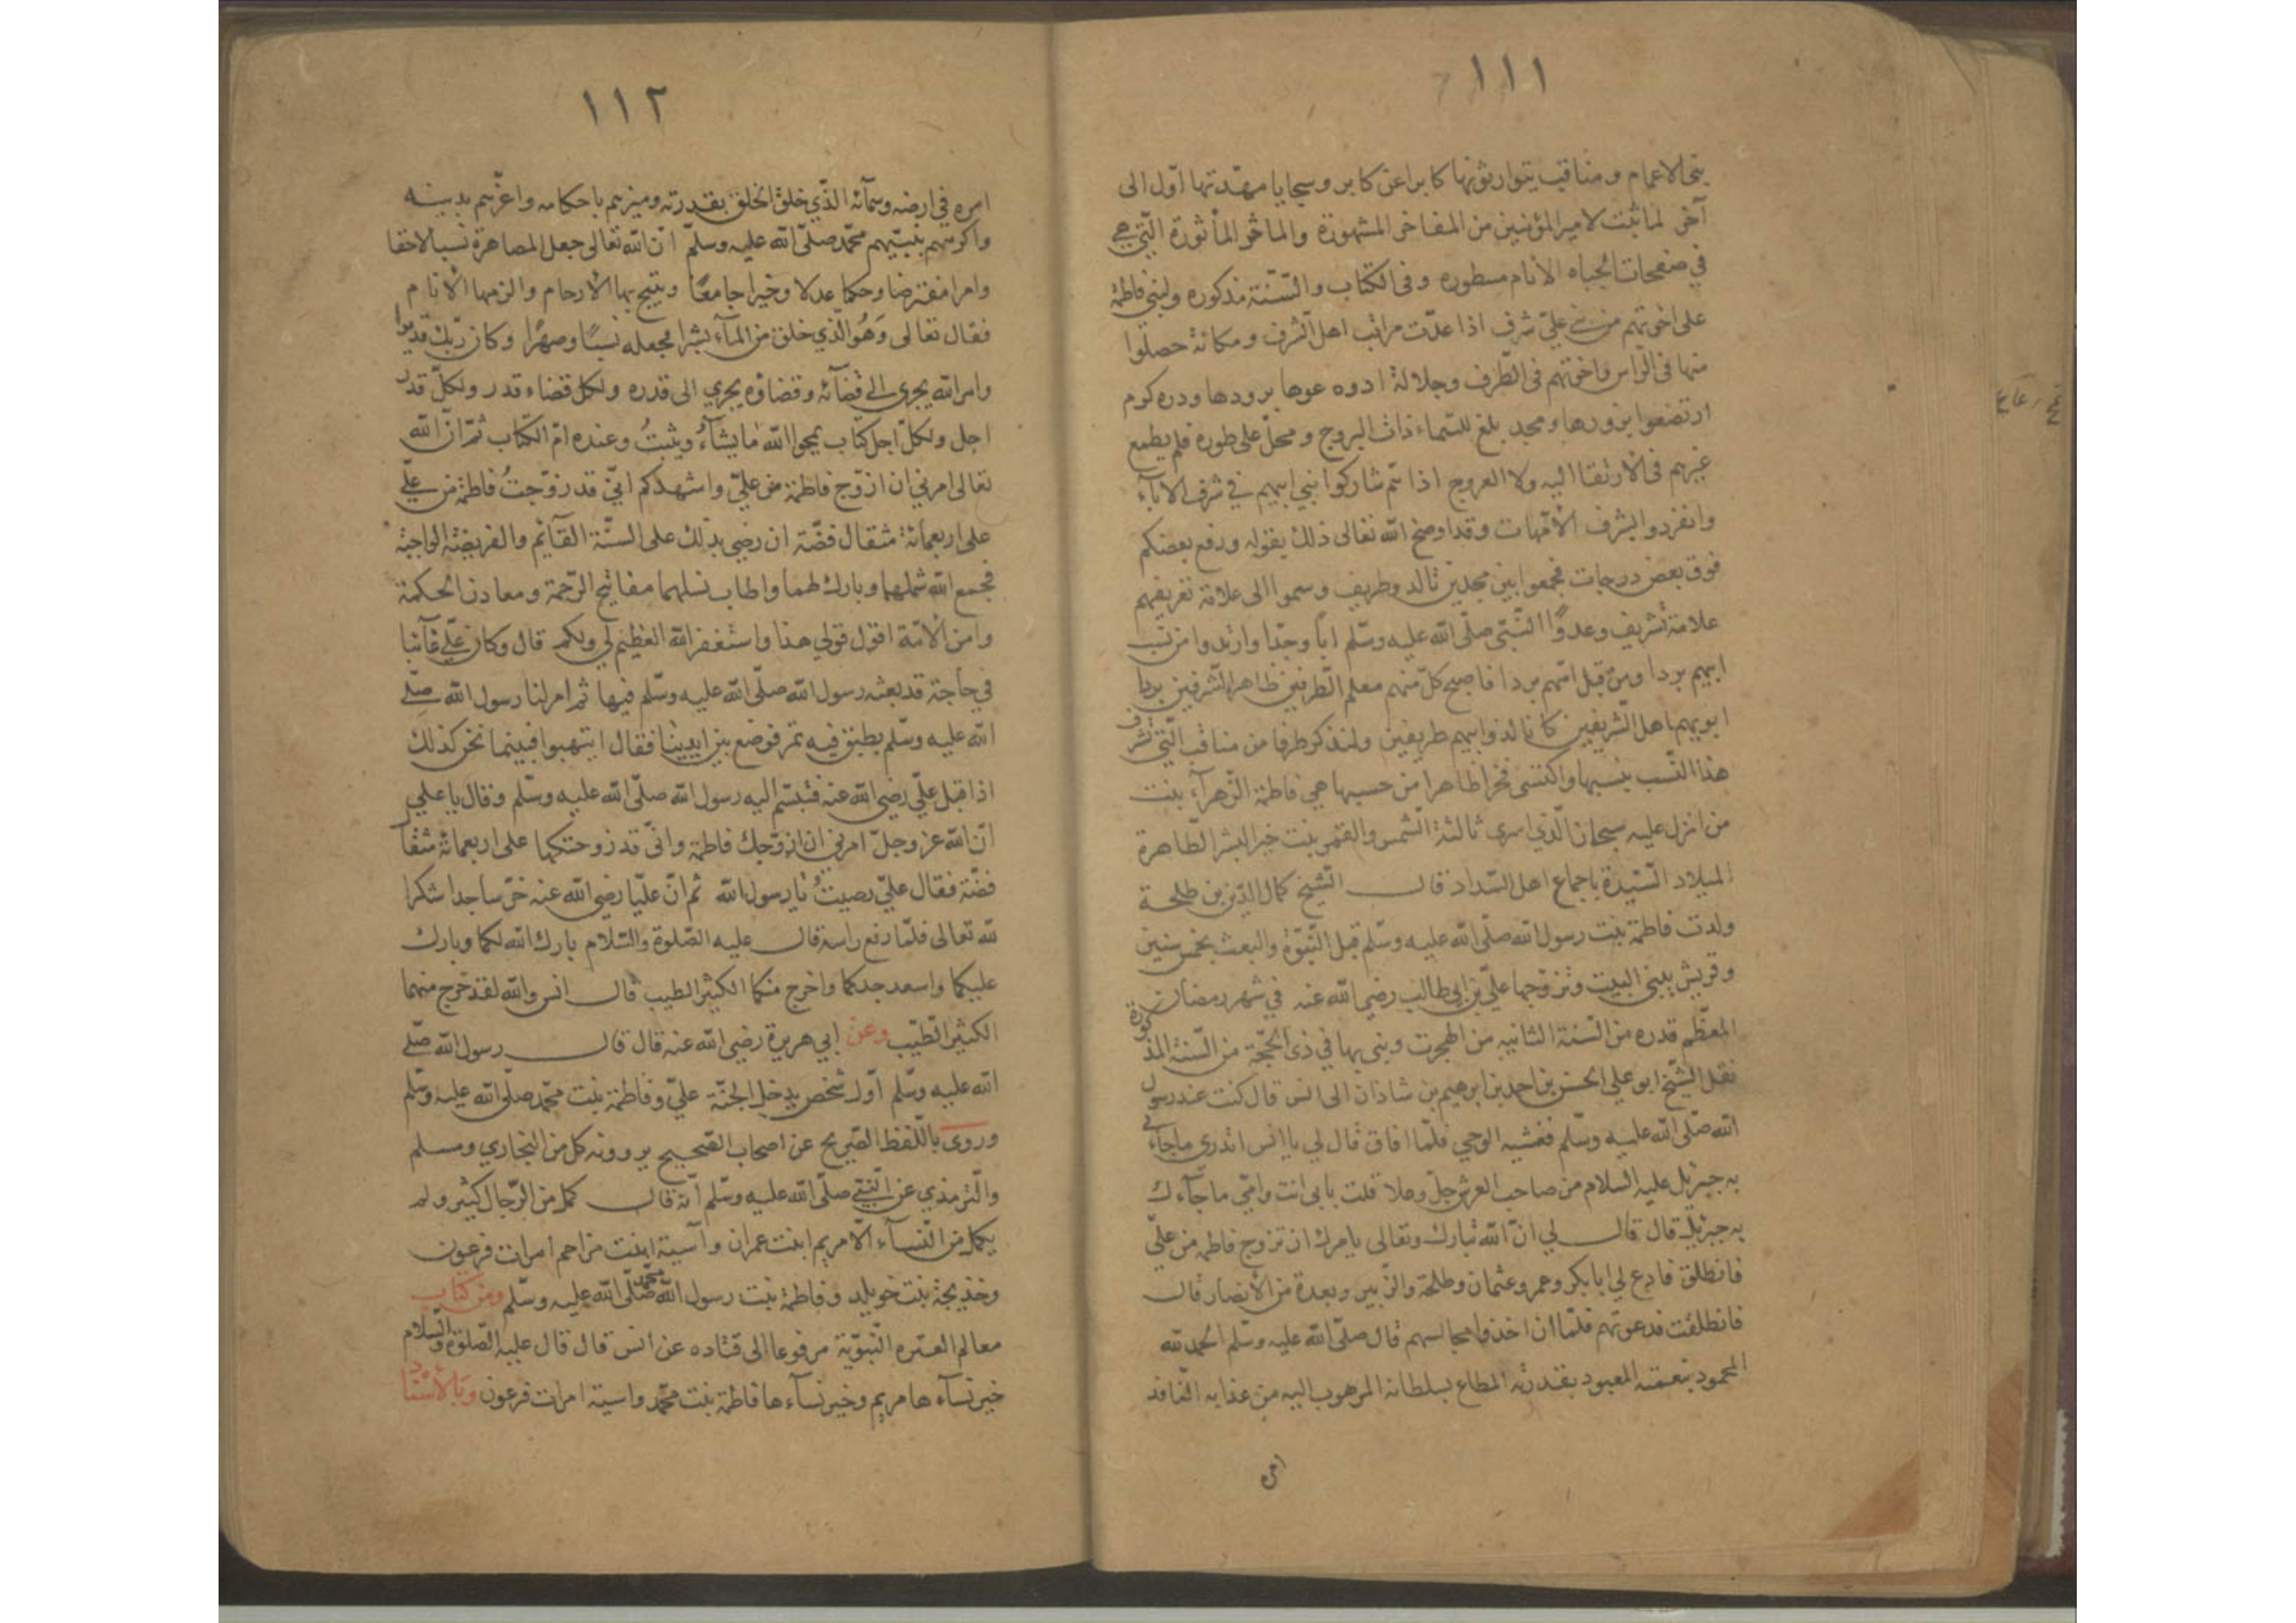 ١١١
بنى الاعمام ومناقب يتوارثونها كابرا عن كابر وسجايا مهدتها اوّل الى
آخر لما ثبت لامير المؤمنين من المفاخر المشهورة والمآثر المأثورة الّتي هي
في صفحات الجباه الانام مسطوره وفى الكتاب والسّنّة مذكوره ولبنى فاطمة
على اخوتهم من بني عليّ شرف اذا عدّت مراتب اهل الشرف ومكانة حصلوا
منها فى الراس واخوتهم فى الطّرف وجلالة ادوه عوها برودها ودره كرم
ارتضعوا بزورها ومجد بلغ للسّماء ذات البروج ومحلّ على طوره فلم يطمع
غيرهم فى الارتقا اليه ولا العروج اذا تم شاركوا بني ابيهم في شرف الاباء
وانفردوا بشرف الامّهات وقد اوضح الله تعالى ذلك بقوله ورفع بعضكم
فوق بعض درجات فجمعوا بين مجدين تالد وطريف وسموا الى علامة تعريفهم
علامة تشريف وعدوّا النّبّي صلّى الله عليه وسلّم اباً وجدّا وارتدوا من نسب
ابيهم بردا ومن قبل امّهم بردا فاصبح كلّ منهم معلم الطّرفين ظاهر الشّرفين
ابويهم اهل الشّريفين كانا لذوابيهم طريفين ولنذكر طرفا من مناقب الّتي تشرف
هذا النّسب بنسبها واكتسى فخرا ظاهرا من حسبها هي فاطمة الزّهرآء بنت
من انزل عليه سبحان الّذي اسرى ثالثة الشّمس والقمر بنت خير البشر الطّاهرة
الميلاد السّيّدة باجماع اهل السّداد قال الشّيخ كمال الدّين بن طلحة
ولدت فاطمة بنت رسول الله صلّى الله عليه وسلّم قبل النّبوّة والبعث بخمس سنين
وقريش يبنى البيت وتزوّجها عليّ بن ابي طالب رضي الله عنه في شهر رمضان
المعظّم قدره من السّنة الثانيه من الهجرت وبنى بها في ذى الحجّة من السّنة المذكورة
نقل الشّيخ ابو على الحسن بن احمد بن ابرهيم بن شاذان الى انس قال كنت عند رسول
الله صلّى الله عليه وسلّم فغشيه الوحي فلمّا افاق قال لي يا انس اتدرى ما جاءنى
به جبرئيل عليه السلام من صاحب العرش جلّ وعلا قلت بابى انت وامّي ما جآءك
به جبرئيل قال قال لي انّ الله تبارك وتعالى يامرك ان تزوج فاطمه من عليّ
فانطلق فادع لي ابا بكر وعمر وعثمان وطلحة والزّبير وبعدة من الأنصار قال
فانطلقت فدعوتهم فلمّا ان اخذوا مجالسهم قال صلّى الله عليه وسلّم الحمد لله
المحمود بنعمته المعبود بقدرته المطاع بسلطانه المرهوب اليه من عذابه النّافذ
امره
١١٢
امره في ارضه وسمآئه الّذي خلق الخلق بقدرته وميزهم باحكامه واعزّهم بدينه
واكرمهم بنبيّهم محمّد صلّى الله عليه وسلّم انّ الله تعالى جعل المصاهرة نسبا لاحقا
وامرا مفترضا وحكما عدلا وخيرا جامعاً وشج بها الأرحام والزمها الأنام
فقال تعالى وَهُوَ الّذي خلق من المآء بشرا فجعله نسبًا وصهرًا وكان ربّك قديرا
وامر الله يجرى الى قضآئه وقضاؤه يجري الى قدره ولكل قضاء قدر ولكلّ قدر
اجل ولكلّ اجل كتاب يمحوا الله ما يشآءُ ويثبتُ وعنده امّ الكتاب ثمّ انّ الله
تعالى امرني ان ازوّج فاطمة من عليّ واشهدكم انّي قد زوّجتُ فاطمة من عليّ
على اربعمائة مثقال فضّة ان رضي بذلك على السنّة القآئم والفريضة الواجبة
فجمع الله شملهما وبارك لهما واطاب نسلهما مفاتيح الرّحمة ومعادن الحكمة
وامن الأمّة اقول قولي هذا واستغفر الله العظيم لي ولكم قال وكان عليّ غآئبا
في حاجة قد بعثه رسول الله صلّى الله عليه وسلّم فيها ثم امر لنا رسول الله صلّى
الله عليه وسلّم بطبق فيه تمر فوضع بين ايدينا فقال انتهبوا فبينما نحن كذلك
اذ اقبل عليّ رضي الله عنه فتبسّم اليه رسول الله صلّى الله عليه وسلّم وقال يا علي
انّ الله عز وجلّ امرني ان ازوّجك فاطمة وانّى قد زوجتكها على اربعمائة مثقا
فضّة فقال عليّ رضيتُ يا رسول الله ثم انّ عليّا رضي الله عنه خرّ ساجدا شكرا
لله تعالى فلمّا رفع راسه قال عليه الصّلوة والسّلام بارك الله لكما وبارك
عليكما واسعد جدكما واخرج منكما الكثير الطيب قال انس والله لقد خرج منهما
الكثير الطّيّب وعن ابي هريرة رضي الله عنه قال قال رسول الله صلّى
الله عليه وسلّم اوّل شخص يدخل الجنّة عليّ وفاطمة بنت محمّد صلّى الله عليه وسلّم
وروى باللّفظ الصّريح عن اصحاب الصّحيح يروونه كل من البخاري ومسلم
والترمذي عن النّبيّ صلّى الله عليه وسلّم انّه قال كمل من الرّجال كثير ولم
يكمل من النّسآء الّا مريم ابنت عمران وآسية ابنت مزاحم امرات فرعون
وخذيجة بنت خويلد وفاطمة بنت رسول الله محمّد صلّى الله عليه وسلّم ومن كتاب
معالم العتره النّبويّة مرفوعا الى قتاده عن انس قال قال عليه الصّلوة والسلام
خير نسآءها مريم وخير نسآءها فاطمة بنت محمّد واسية امرات فرعون وبالأسناد